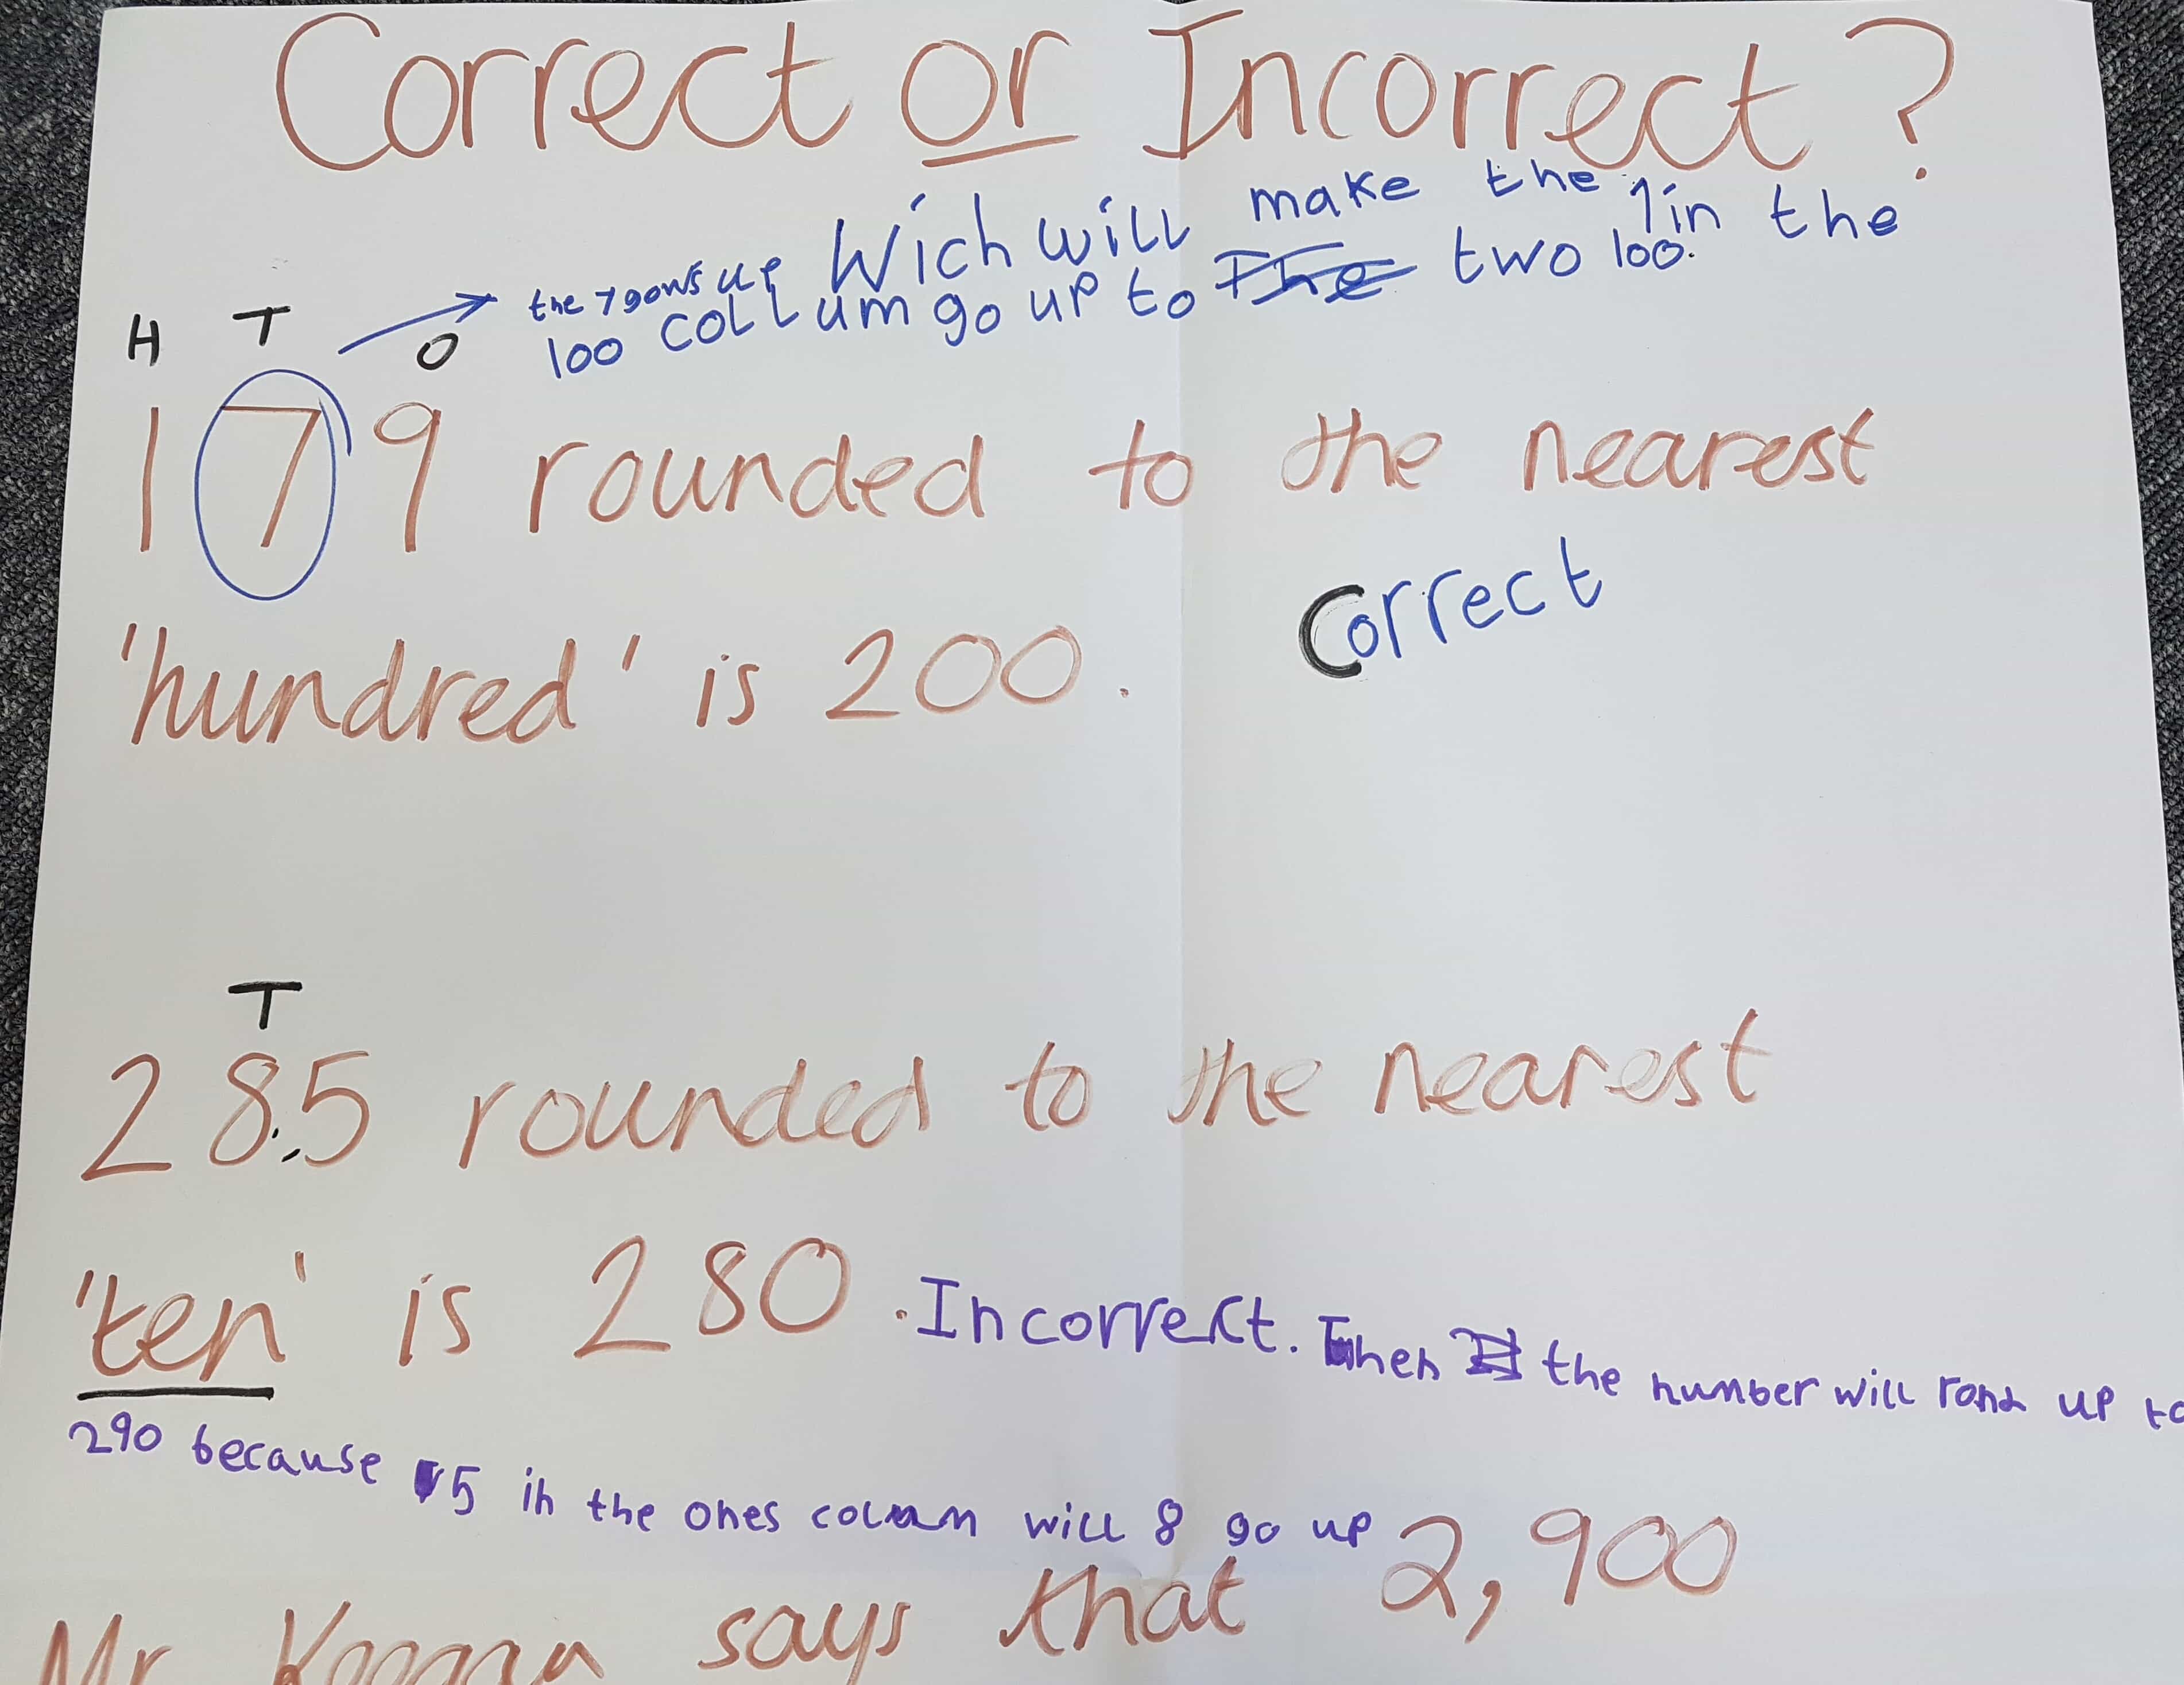 Correct or Incorrect?
the 7 gows up Wich will make the 1 in the
100 collum go up to The two 100.
H T O
179 rounded to the nearest
'hundred' is 200. Correct
T
285 rounded to the nearest
'ten' is 280. Incorrect. Then the number will rond up to
290 because 5 in the ones colum will 8 go up
Mr says that 2,900